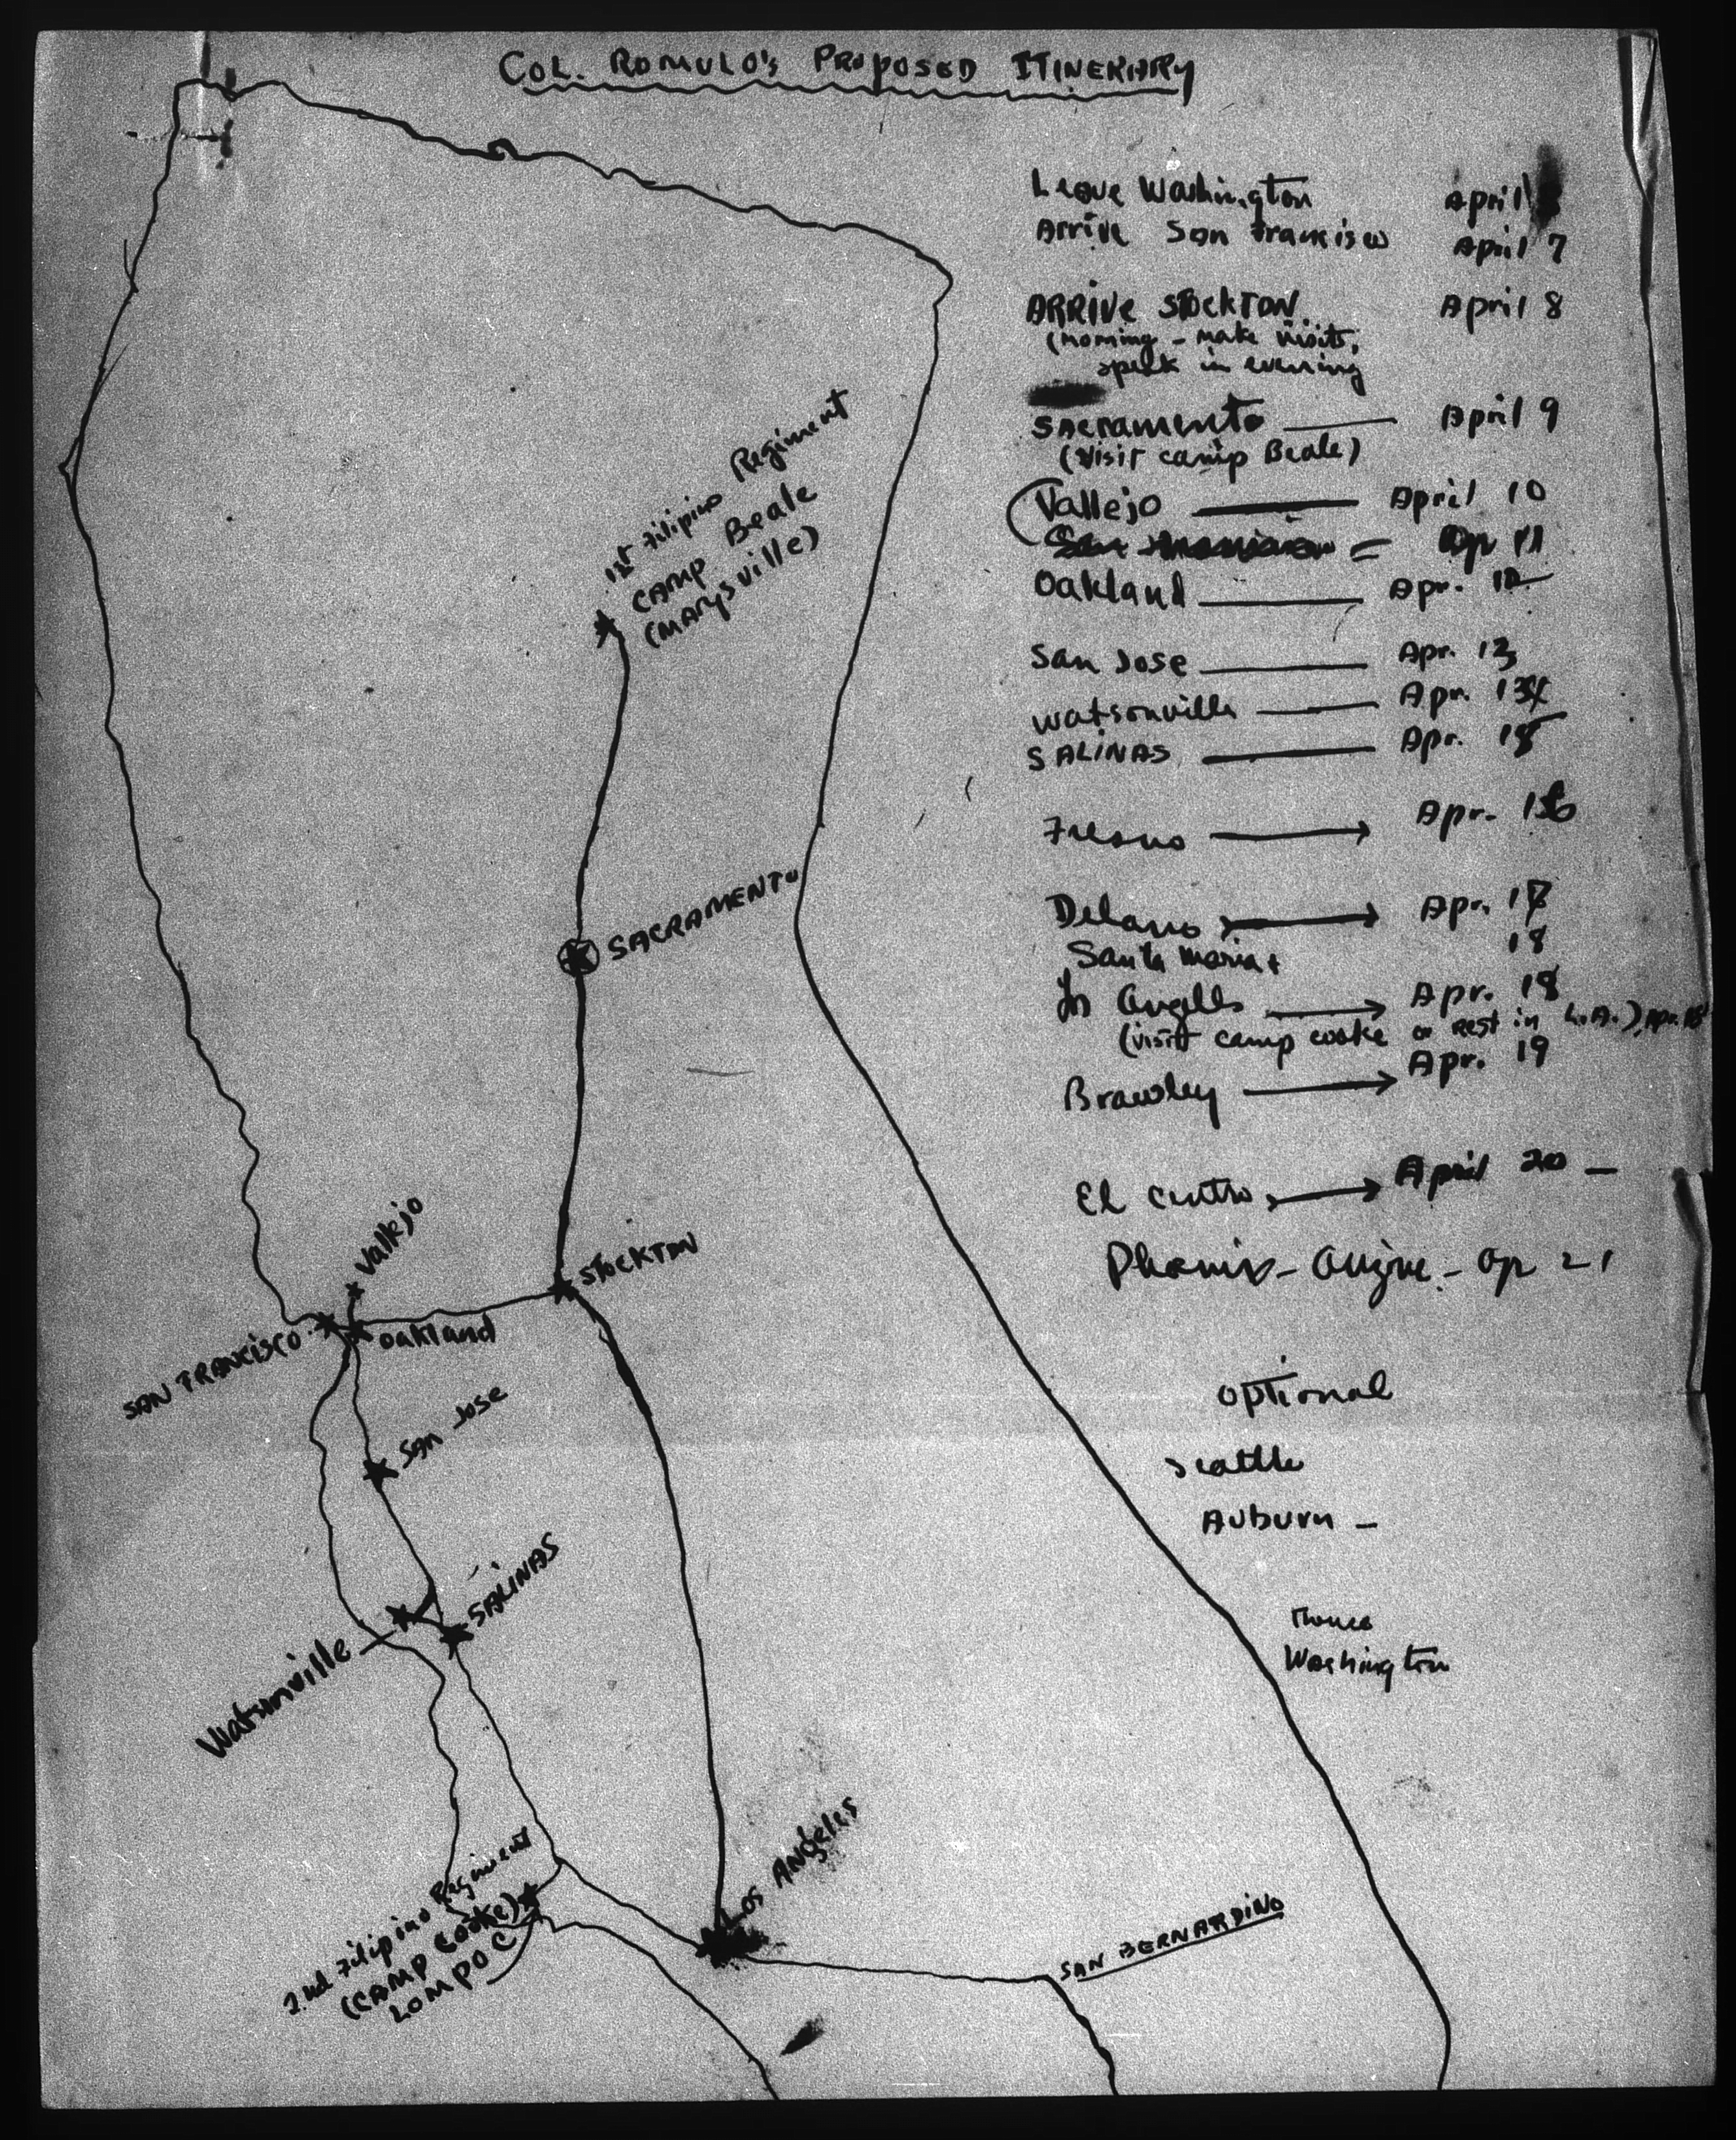 COL. ROMULO'S PROPOSED ITINERARY
Leave Washington April
Arrive San Francisco April 7
ARRIVE STOCKTON. April 8
(Morning - make visits,
speak in evening
SACRAMENTO April 9
(Visit camp Beale)
Vallejo April 10
Oakland Apr. 12
San Jose Apr. 13
Watsonville Apr.
SALINAS Apr. 15
Fresno Apr. 16
Delano Apr. 17
Santa Maria 18
Los Angeles Apr. 18
(visit camp cooke or rest in L.A.), Apr. 18
Brawley Apr. 19
El Centro April 20 -
Phoenix - - Ap 21
optional
Seattle
Auburn -
Thence
Washington
1st Filipino Regiment
CAMP Beale
(MARYSVILLE)
SACRAMENTO
Vallejo
STOCKTON
SAN FRANCISCO
Oakland
SAN JOSE
SALINAS
Watsonville
LOS ANGELES
2nd Filipino Regiment
(CAMP COOKE)
LOMPOC
SAN BERNARDINO